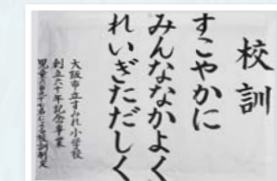 校訓
すこやかに
みんななかよく
れいぎただしく
大阪市立すみれ小学校
創立六十年記念事業